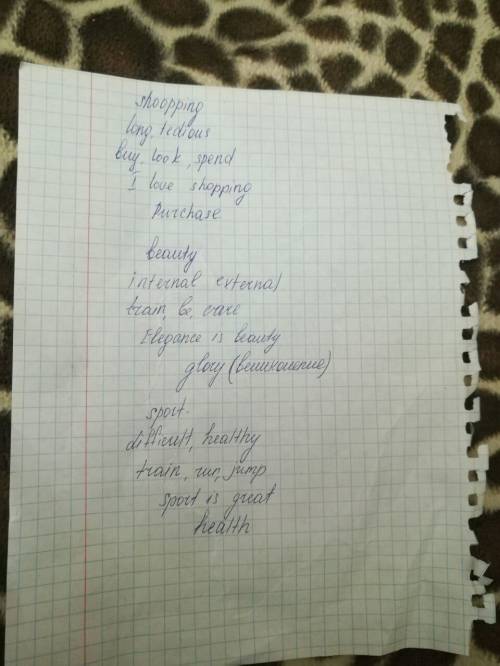 shoopping
long, tedious
buy, look, spend
I love shopping
Purchase
beauty
internal external
train, be, care
Elegance is beauty
glory (великолепие)
sport.
difficult, healthy
train, run, jump
sport is great
health